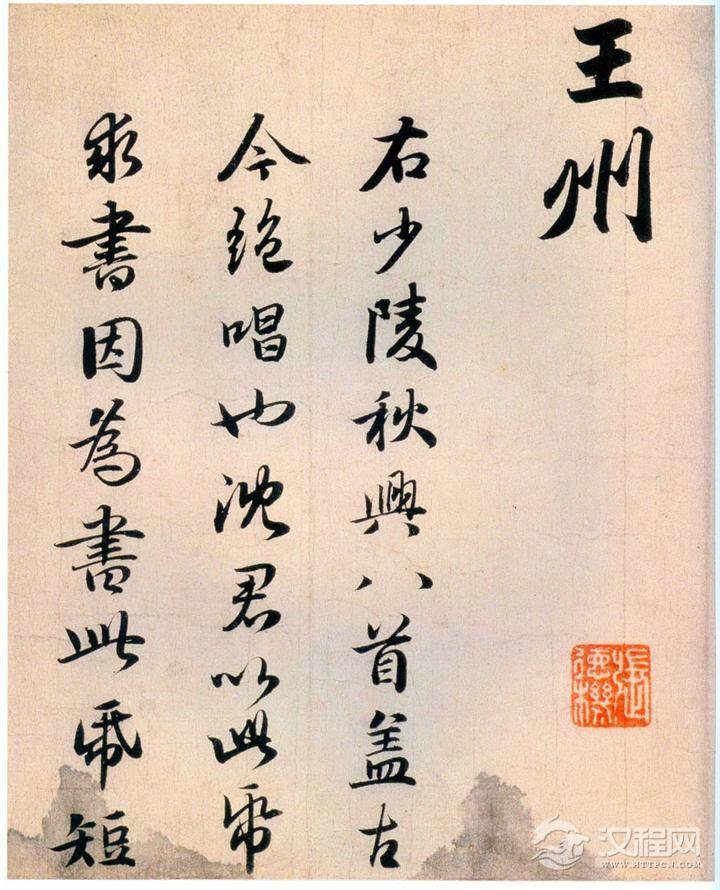 王州
右少陵秋興八首盖古
今絶唱也沈君以此帋
求書因為書此帋短
汉程网
HTTPCN.COM